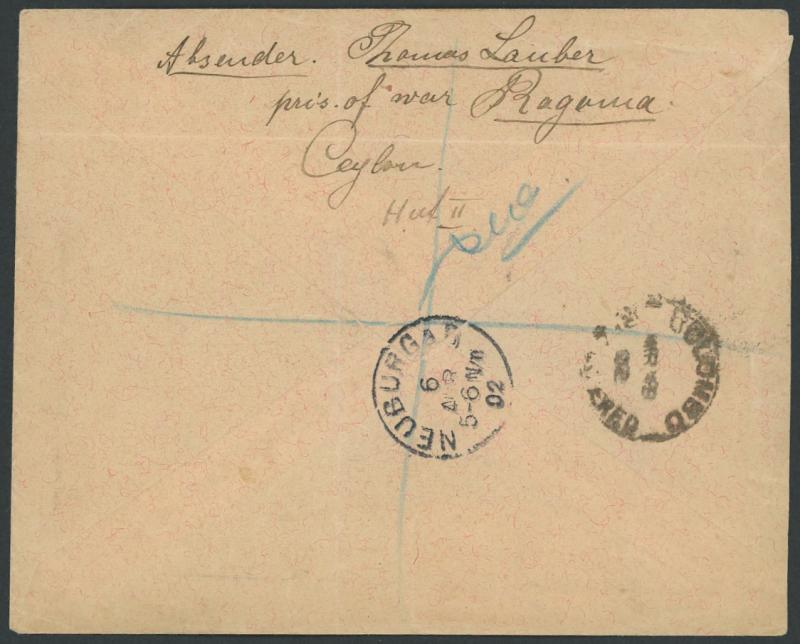 Absender. Thomas Lauber
pris. of war Ragama.
Ceylon.
Hut II
NEUBURG A/D
6
APR
5-6 Nm
02
COLOMBO